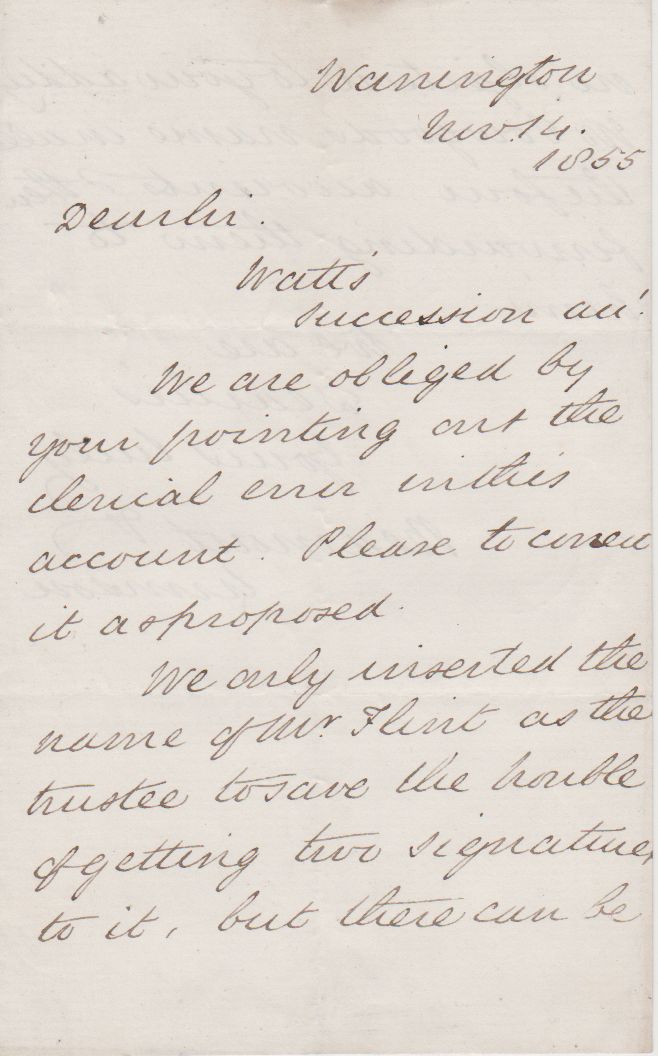 Warrington
Nov. 14.
1855
Dear Sir.
Watt's
Succession act.
We are obliged by
your pointing out the
clerical error in this
account. Please to correct
it as proposed.
We only inserted the
name of Mr. Flint as the
trustee to save the trouble
of getting two signatures
to it, but there can be